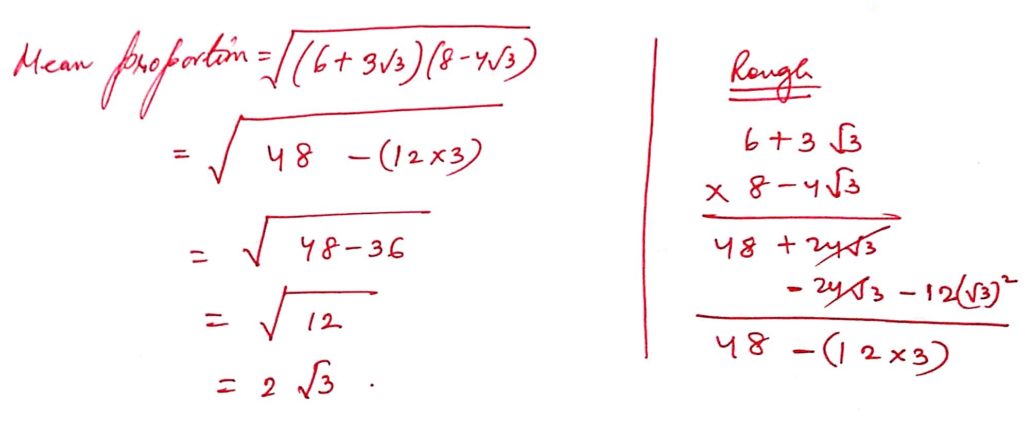 Mean proportion = √(6+3√3)(8-4√3)
= √48 -(12×3)
= √48-36
= √12
= 2 √3 .
Rough
6+3 √3
× 8-4√3
48 + 24√3
- 24√3 - 12(√3)²
48 -(12×3)